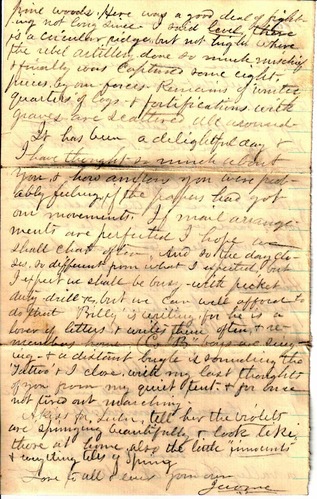 pine woods. Here was a good deal of fight-
ing not long since. & said level, there
is a circular ridge, but not high, where
the rebel artillery done so much mischief
& finally was captured some eight
pieces, by our forces. Remains of winter
quarters of logs, & fortifications with
graves are scattered all around.
It has been a delightful day &
I have thought so much about
you & how anxious you were prob-
ably feeling, if the papers had got
our movements. If mail arrange-
ments are perfected I hope we
shall chat often. And so the day clo-
ses, so different from what I expected, but
I expect we shall be busy with picket
duty drill &c, but we can well afford to
do that. "Billy" is writing, for he is a
lover of letters & writes them often, & re-
members home. "Co. B" boys are sing-
ing & a distant bugle is sounding the
Tattoo & I close with my last thoughts
of you from my quiet tent. & for once
not tired out marching.
A kiss for Lulu, tell her the violets
are springing beautifully & look like
those at home, also the little innocents
& everything tells of Spring
Love to all & ever your own
Jerome